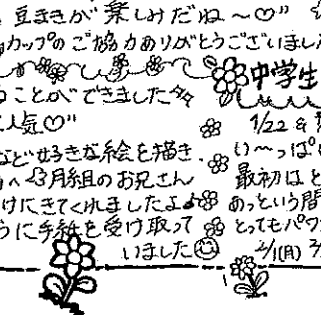 豆まきが楽しみだね～♡"
カップのご協力ありがとうございまし
ことができました
人気♡"
など好きな絵を描き、
へ 3月組のお兄さん
けにきてくれましたよ
うに手紙を受け取って
いました
中学生
1/22 &
い～っぱ
最初はと
あっという間
とってもパワ
2/1(月)